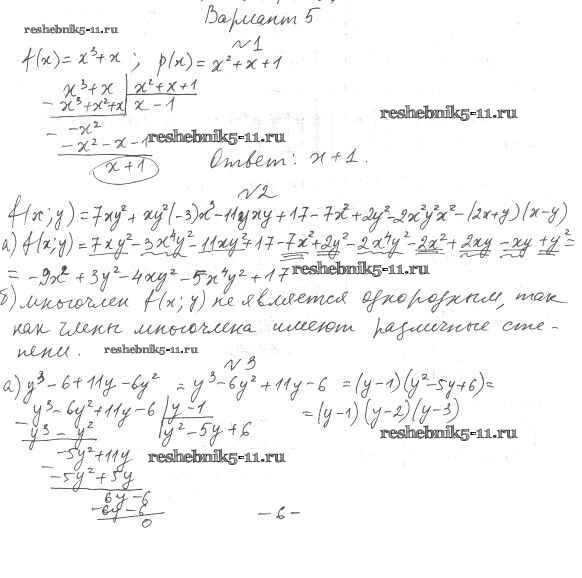 Вариант 5
reshebnik5-11.ru
№1
f(x) = x³+x ; p(x) = x²+x+1
x³+x | x²+x+1
- x³+x²+x | x-1
reshebnik5-11.ru
- -x²
-x²-x-1
reshebnik5-11.ru
x+1
Ответ: x+1.
№2
f(x;y) = 7xy² + xy²(-3)x³ - 11yxy + 17 - 7x² + 2y² - 2x²y²x² - (2x+y)(x-y)
а) f(x;y) = 7xy² - 3x⁴y² - 11xy² + 17 - 7x² + 2y² - 2x⁴y² - 2x² + 2xy - xy + y² =
= -9x² + 3y² - 4xy² - 5x⁴y² + 17
reshebnik5-11.ru
б) многочлен f(x;y) не является однородным, так
как члены многочлена имеют различные сте-
пени.
reshebnik5-11.ru
№3
а) y³-6+11y-6y² = y³-6y²+11y-6 = (y-1)(y²-5y+6) =
- y³-6y²+11y-6 | y-1
= (y-1)(y-2)(y-3)
y³ - y² | y²-5y+6
reshebnik5-11.ru
- -5y²+11y
reshebnik5-11.ru
-5y²+5y
6y-6
- 6y-6
0
- 6 -